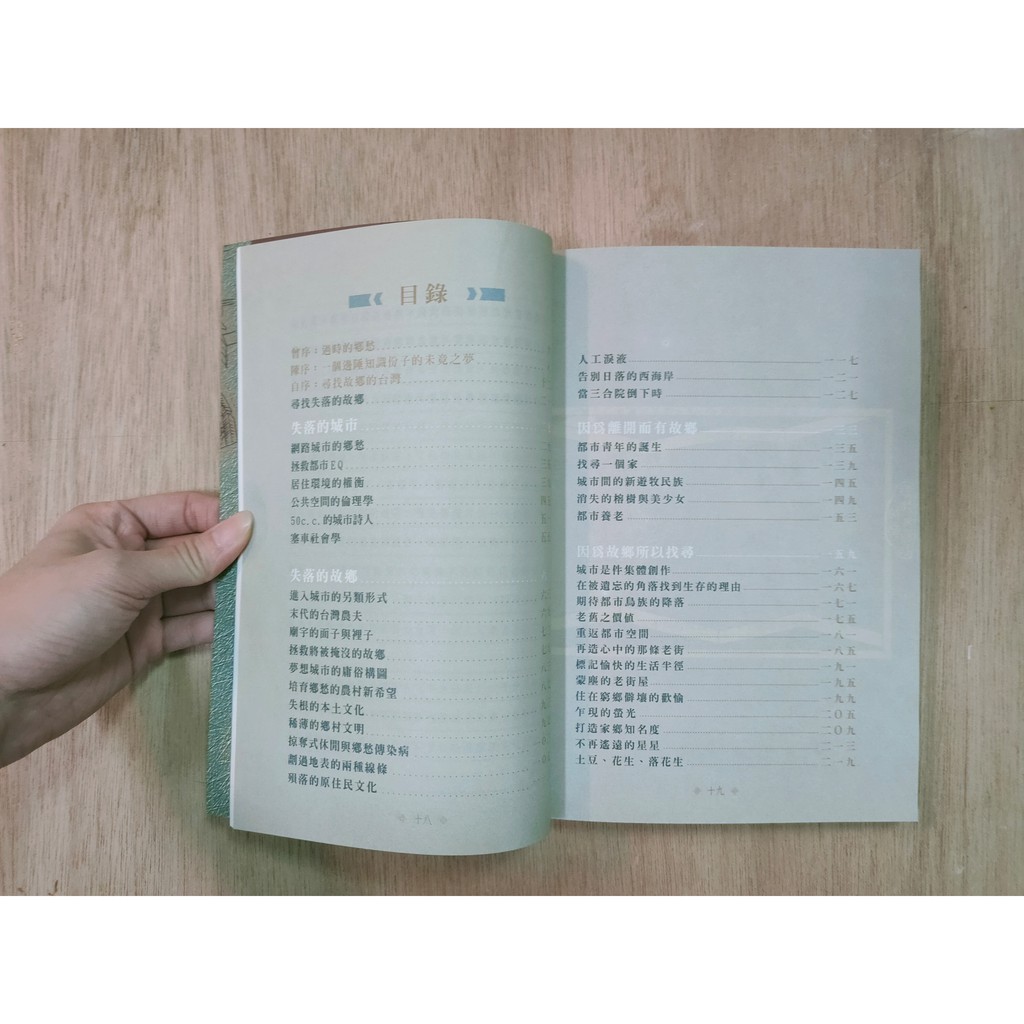 目錄
曾序：過時的鄉愁
陳序：一個邊陲知識份子的未竟之夢
自序：尋找故鄉的台灣
尋找失落的故鄉
失落的城市
網路城市的鄉愁
拯救都市EQ
居住環境的權衡
公共空間的倫理學
50c.c.的城市詩人
塞車社會學
失落的故鄉
進入城市的另類形式
末代的台灣農夫
廟宇的面子與裡子
拯救將被掩沒的故鄉
夢想城市的庸俗構圖
培育鄉愁的農村新希望
失根的本土文化
稀薄的鄉村文明
掠奪式休閒與鄉愁傳染病
劃過地表的兩種線條
殞落的原住民文化
十八
人工淚液 一一七
告別日落的西海岸 一二一
當三合院倒下時 一二七
因為離開而有故鄉 一三三
都市青年的誕生 一三五
找尋一個家 一三九
城市間的新遊牧民族 一四五
消失的榕樹與美少女 一四九
都市養老 一五三
因為故鄉所以找尋 一五九
城市是件集體創作 一六一
在被遺忘的角落找到生存的理由 一六七
期待都市鳥族的降落 一七一
老舊之價值 一七五
重返都市空間 一八一
再造心中的那條老街 一八五
標記愉快的生活半徑 一九一
蒙塵的老街屋 一九五
住在窮鄉僻壤的歡愉 一九九
乍現的螢光 二〇五
打造家鄉知名度 二〇九
不再遙遠的星星 二一三
土豆、花生、落花生 二一九
十九